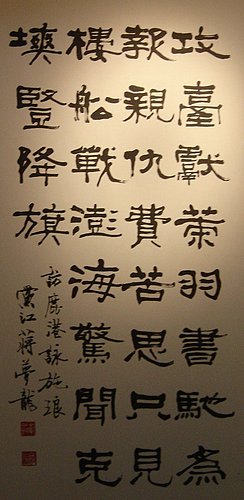 攻臺獻策羽書馳為
報親仇費苦思只見
樓船戰澎海驚聞克
塽豎降旗
訪鹿港詠施琅
江蔣夢龍